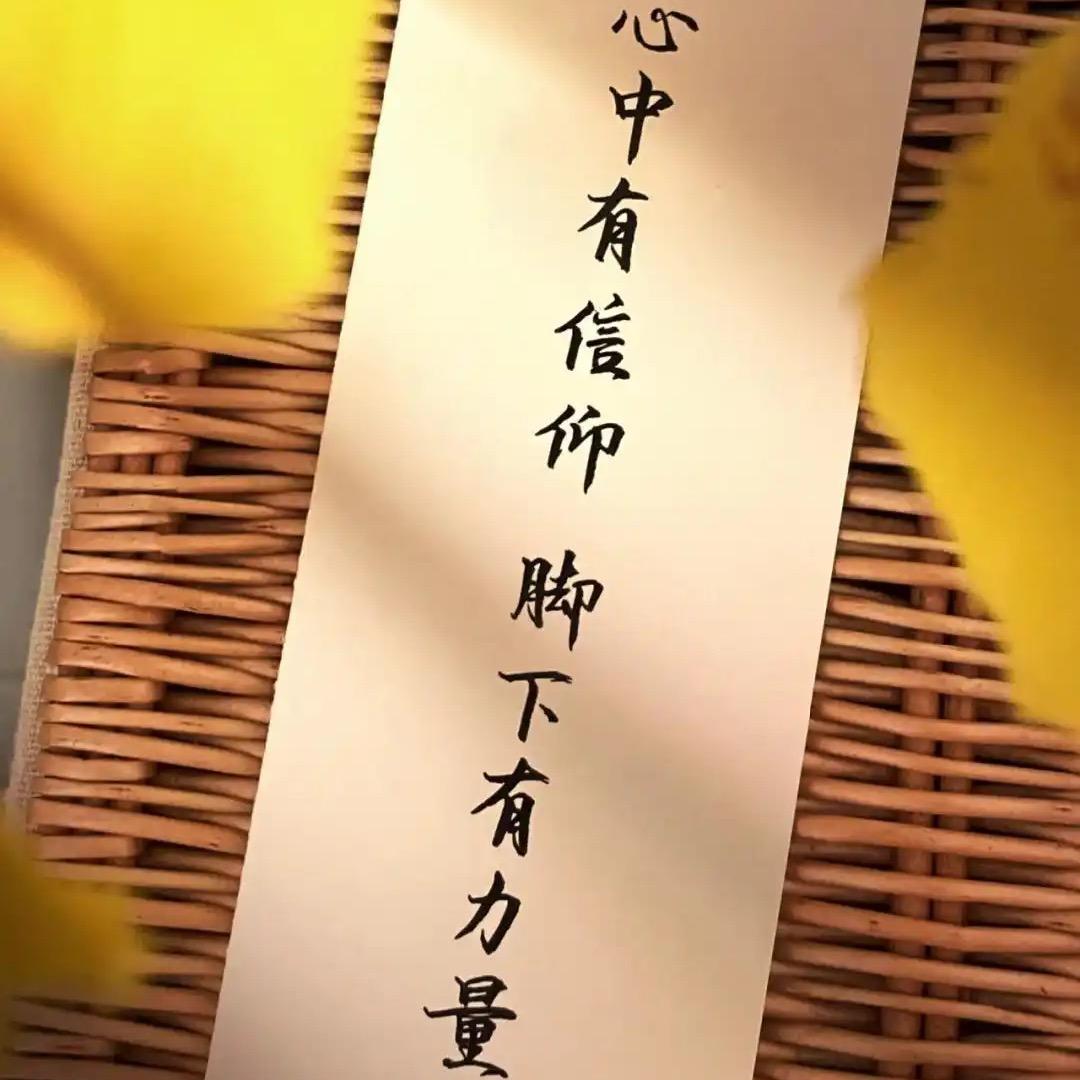 心中有信仰 脚下有力量